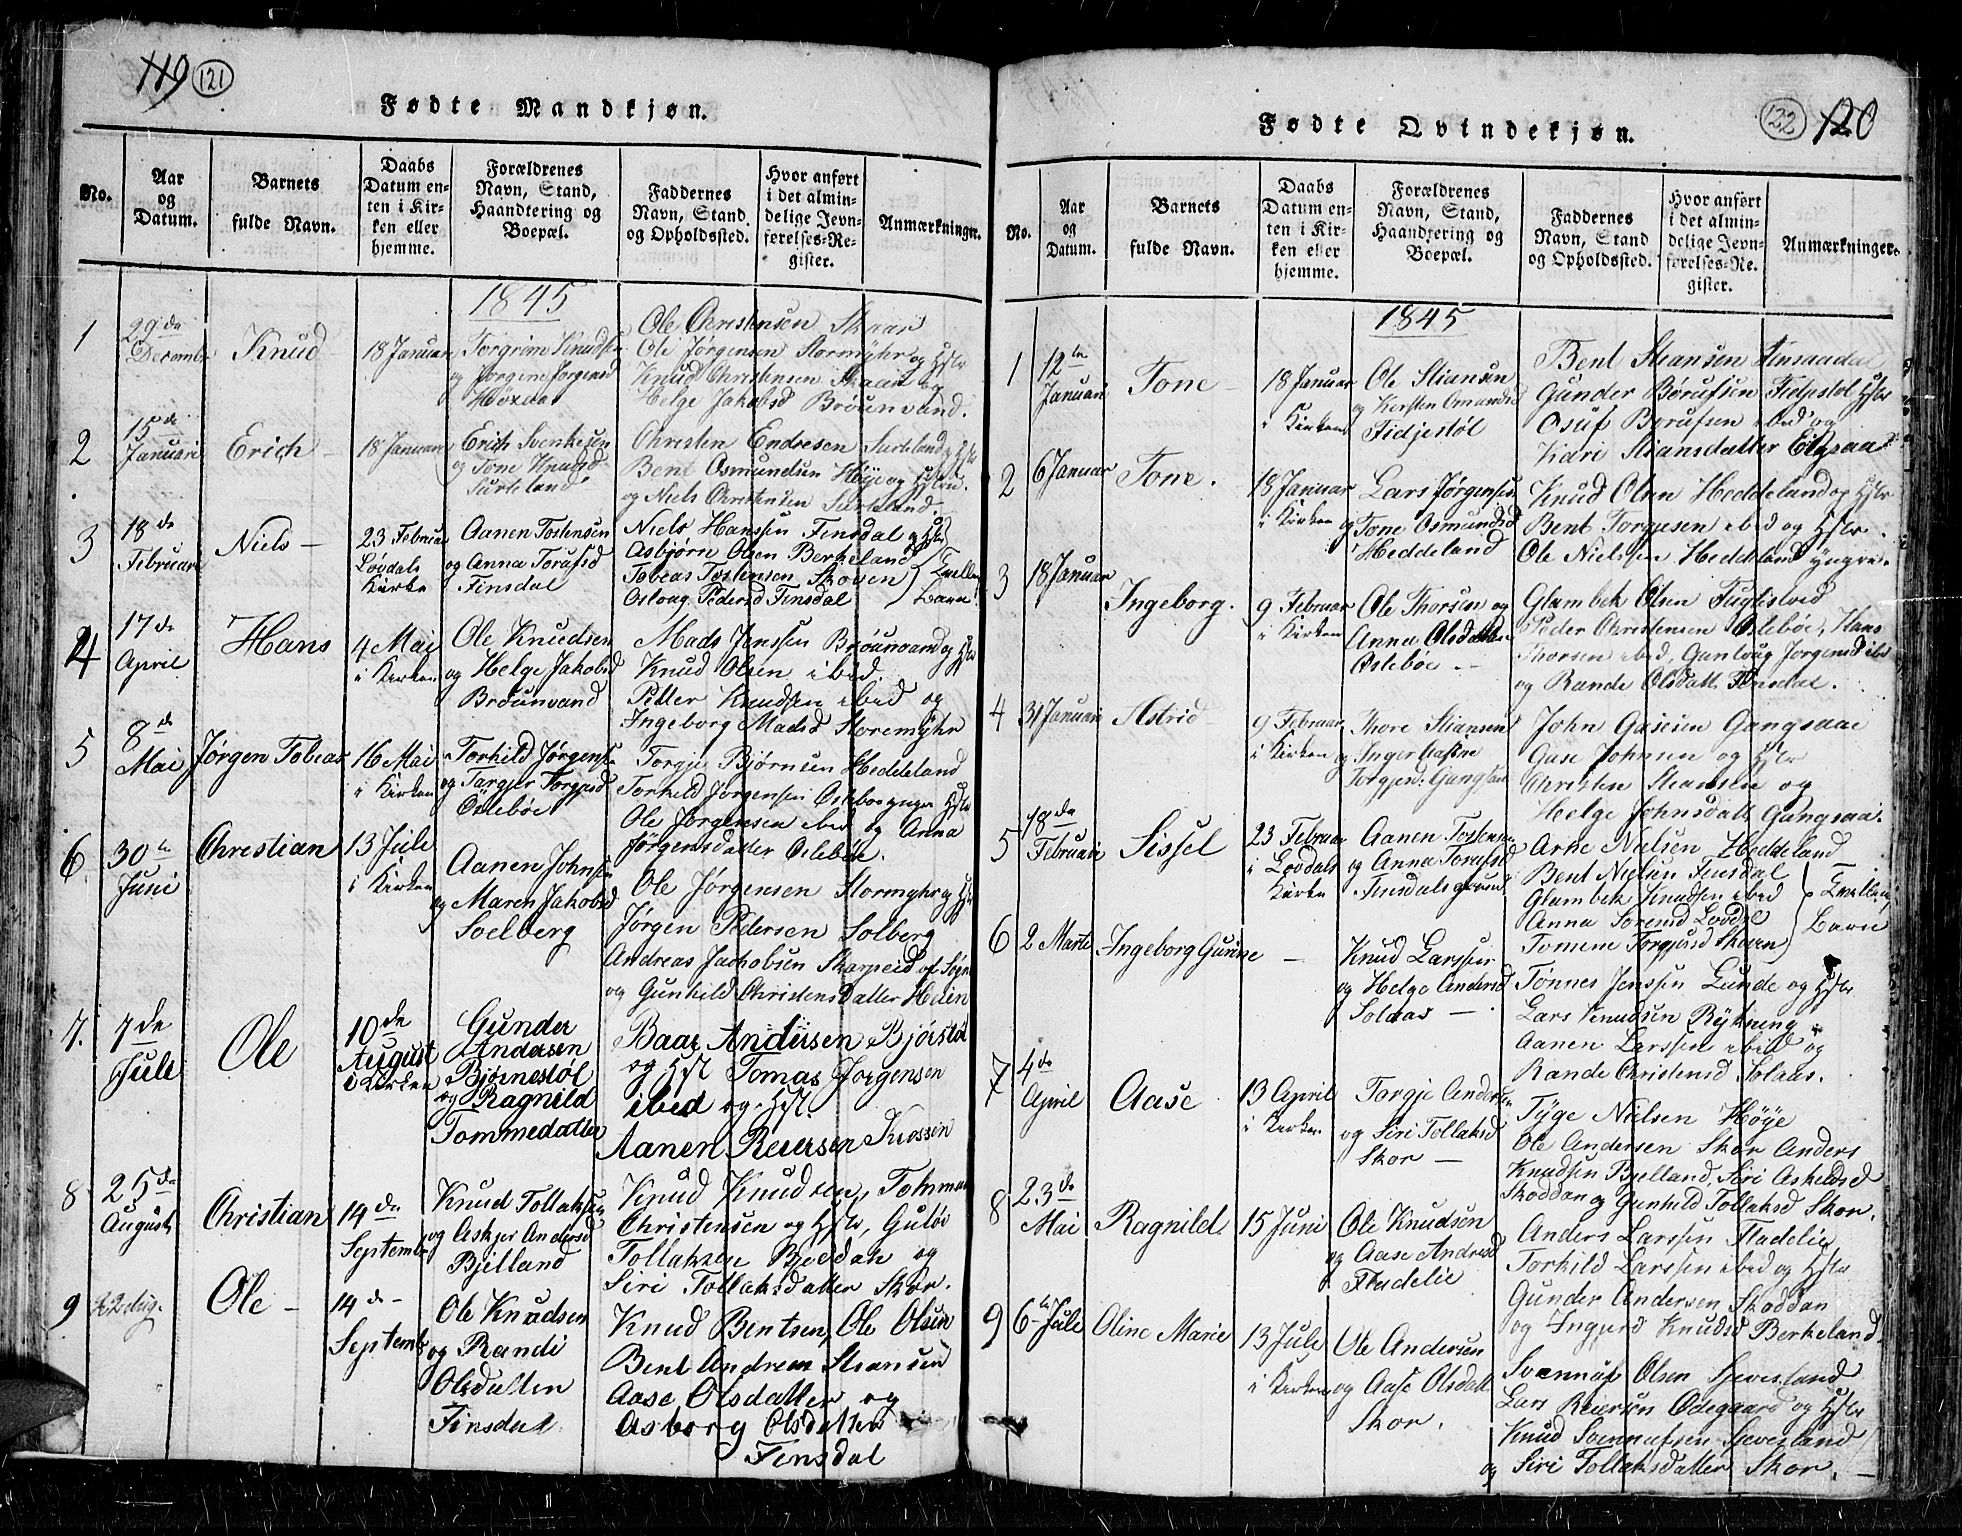 119 121
Fødte Mandkjøn.
No.
Aar
og
Datum.
Barnets
fulde Navn.
Daabs
Datum en-
ten i Kir-
ken eller
hjemme.
Forældrenes
Navn, Stand,
Haandtering og
Boepæl.
Faddernes
Navn, Stand
og Opholdssted.
Hvor anført
i det almin-
delige Jevn-
førelses-Re-
gister.
Anmærkninger.
1845
1
29de
Decembr
Knud
18 Januar
Torgrim Knudsen
og Jorgine Jorgensd
Ole Christensen Skaar
Ole Jørgensen Stormyhr og Hstr
Knud Christensen Skaar og
Helge Jakobsd Brøunvand.
2
15de
Januari
Erich
18 Januar
Erich Svenkesen
og Tone Knudsd
Surteland
Christen Endresen Surteland og Hstr
Bent Osmundsen Høye og Hstru.
og Niels Christensen Surteland.
3
18de
Februari
Niels
23 Februar
Løvdals
Kirke
Aanen Tostensen
og Anna Torafsd
Finsdal
Niels Hansen Finsdal og Hstr
Asbjørn Olsen Berkeland
Tobias Tostensen Skoven
Osloug Pedersd Finsdal
Tvilling
Barn
4
17de
April
Hans
4 Mai
i Kirken
Ole Knudsen
og Helge Jakobsd
Brøunvand
Mads Jenssen Brøunvand og Hstr
Knud Olsen ibid.
Petter Knudsen ibid og
Ingeborg Madsd Storemyhr
5
8de
Mai
Jørgen Tobias
16 Mai
i Kirken
Torkild Jørgensen
og Targjer Torgjusd
Oslebøe
Torgje Bjørnsen Heddeland
Torkild Jørgensen Oslebøe yngre Hstr
Ole Jørgensen ibid og Anna
Jørgensdatter Oslebøe.
6
30te
Juni
Christian
13 Julii
i Kirken
Aanen Johnsen
og Maren Jakobsd
Soelberg
Ole Jørgensen Stormyhr og Hstr
Jørgen Pedersen Solberg
Andreas Jachobsen Skarpeid af Sogn
og Gunhild Christensdatter Heien
7.
7de
Juli
Ole
10de
August
i Kirken
Gunder
Andersen
Bjørnestøl
og Ragnild
Tommedatter
Baar Andersen Bjørstøl
og Hst Tomas Jørgensen
ibid og Hst.
Aanen Reiersen Krossen
8
25de
August
Christian
14de
Septembr
Knud Tollaksen
og Askjer Andersd
Bjelland
Knud Knudsen, Tommas
Christensen og Hstr, Guloi
Tollaksen Bjeddah og
Siri Tollaksdatter Skor.
9
22 Aug.
Ole
14de
Septembr
Ole Knudsen
og Randi
Olsdatter
Finsdal
Knud Bentsen, Ole Olsen
Bent Andreas Stiansen
Aase Olsdatter og
Asborg Olsdatter
Finsdal
122 120
Fødte Qvindekjøn.
No.
Aar
og
Datum.
Barnets
fulde Navn.
Daabs
Datum en-
ten i Kir-
ken eller
hjemme.
Forældrenes
Navn, Stand,
Haandtering og
Boepæl.
Faddernes
Navn, Stand
og Opholdssted.
Hvor anført
i det almin-
delige Jevn-
førelses-Re-
gister.
Anmærkninger.
1845
1
12te
Januari
Tone
18 Januar
i Kirken
Ole Stiansen
og Kersten Omundsd
Fidjestøl
Bent Stiansen Finsaadal
Gunder Børufsen Fidjestøl Hstr
Osuf Børufsen ibid og
Kari Stiansdatter Eigsaa
2
6 Januar
Tone.
18 Januar
i Kirken
Lars Jørgensen
og Tone Osmundsd
Heddeland
Knud Olsen Heddeland og Hstr
Bent Torgiesen ibid og Hstr.
Ole Nielsen Heddeland yngre.
3
18 Januar
Ingeborg.
9 Februar
i Kirken
Ole Thorsen og
Anna Olsdatter
Oslebøe
Glambek Olsen Fuglestved
Peder Christensen Oslebøe, Hans
Thorsen ibid, Gunloug Jørgensd ibd
og Rande Olsdatt. Finsdal.
4
31 Januari
Astrid
9 Februar
i Kirken
Thore Stiansen
og Inger
Torgjend: Gangsaa
John Gasesen Gangsaae
Gase Johnsen og Hstr
Christen Stiansen og
Helge Johnsdatt. Gangsaa.
5
18de
Februari
Sissel
23 Februar
i Løvdals
Kirke
Aanen Tostensen
og Anna Torafsd
Finsdalsgrund
Arne Nielsen Heddeland
Bent Nielsen Finsdal
Glambek Knudsen ibid
Anna Sorensd Lovdal
Tomine Torgjusd Skoven
Tvilling
Barn
6
2 Marts
Ingeborg Gurine
Knud Larssen
og Helge Andersd
Solaas
Tønnes Jenssen Lunde og Hstr
Lars Knudsen Rykning
Aanen Larssen ibid og
Rande Christensd Solaas.
7
4de
April
Aase
13 April
i Kirken
Torgje Andersen
og Siri Tollaksd
Skor
Tyge Nielsen Høye
Ole Andersen Skor Anders
Knudsen Bjelland, Siri Askildsd
Skoddan og Gunhild Tollaksd Skor.
8
23de
Mai
Ragnild
15 Juni
Ole Knudsen
og Aase Andresd
Fladelie
Anders Larssen Fladelie
Torkild Larssen ibid og Hstr
Gunder Andersen Skoddan
og Ingjerd Knudsd Berkeland.
9
6te Julii
Oline Marie
13 Julii
i Kirken
Ole Andersen
og Aase Olsdatt
Skor.
Svennuf Olsen Sjevesland
Lars Reiersen Ødegaard og Hstr
Knud Svennufsen Sjevesland
og Siri Tollaksdatter Skor.